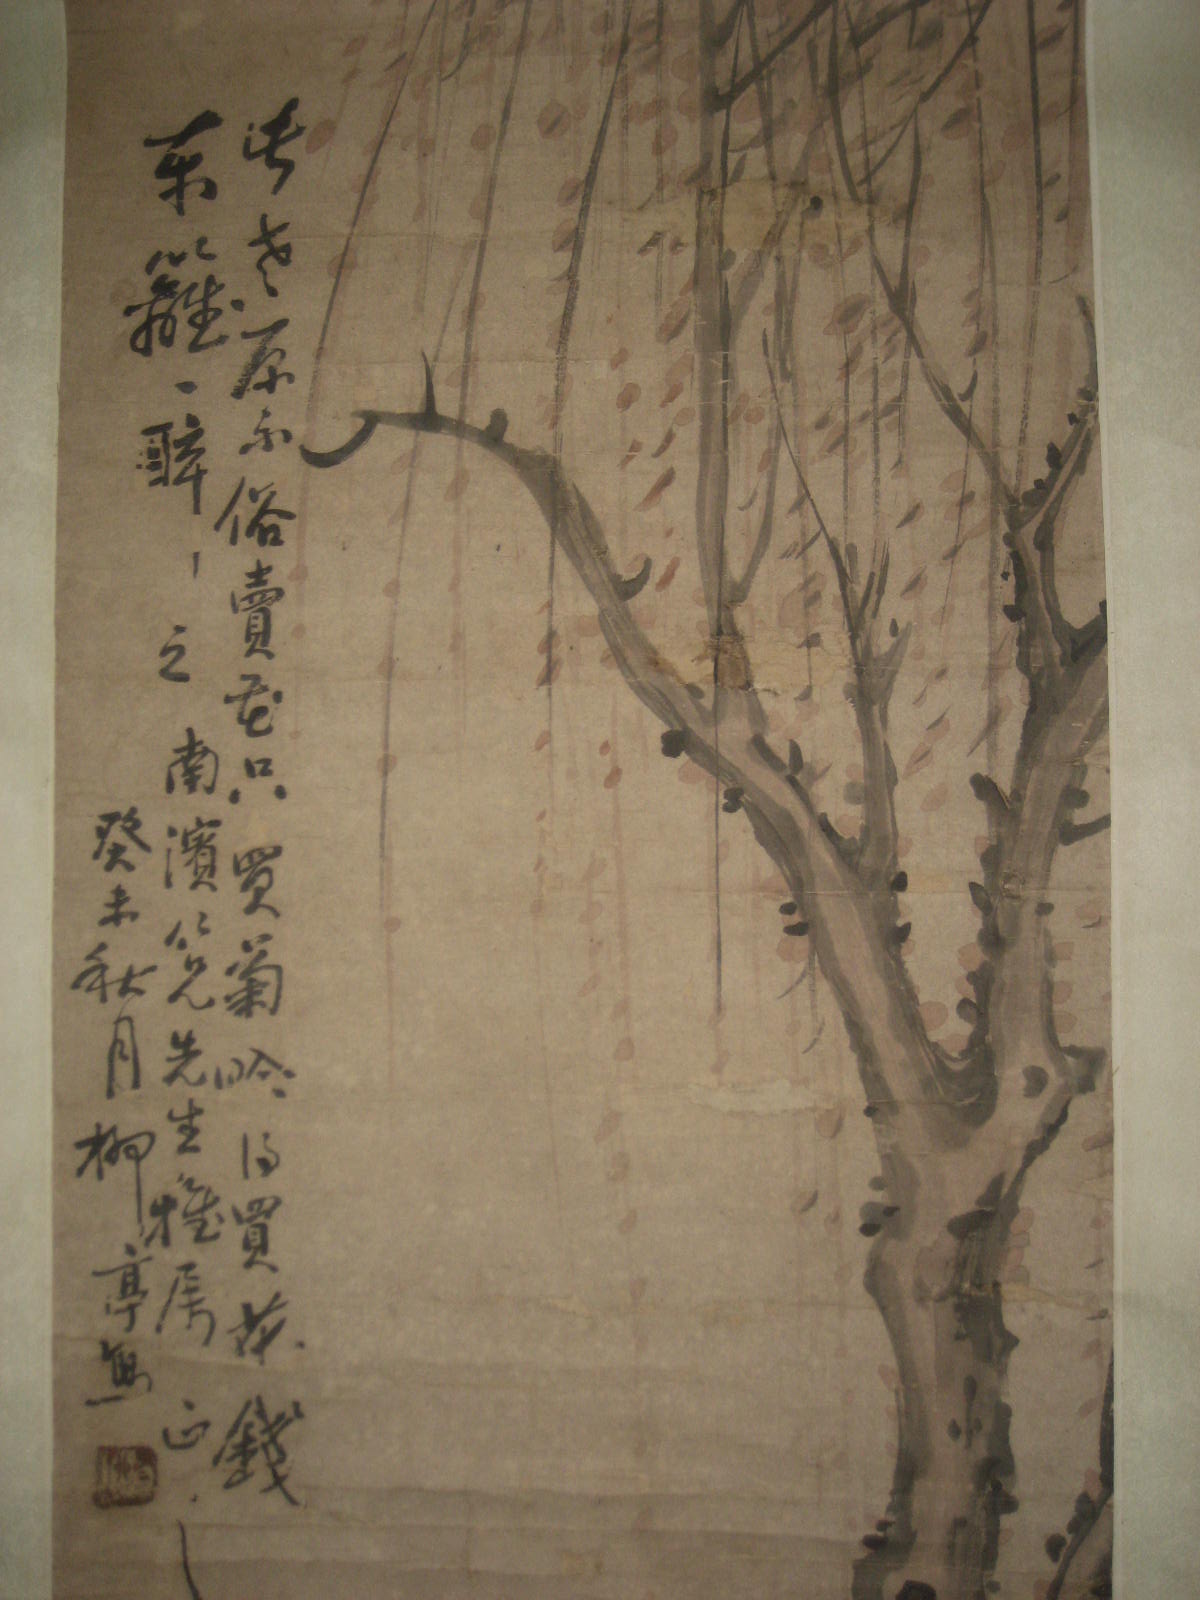 此老原不俗賣花只買菊吟得買花錢
東籬、醉、之 南濱仁兄先生雅屬 正
癸未秋月柳亭